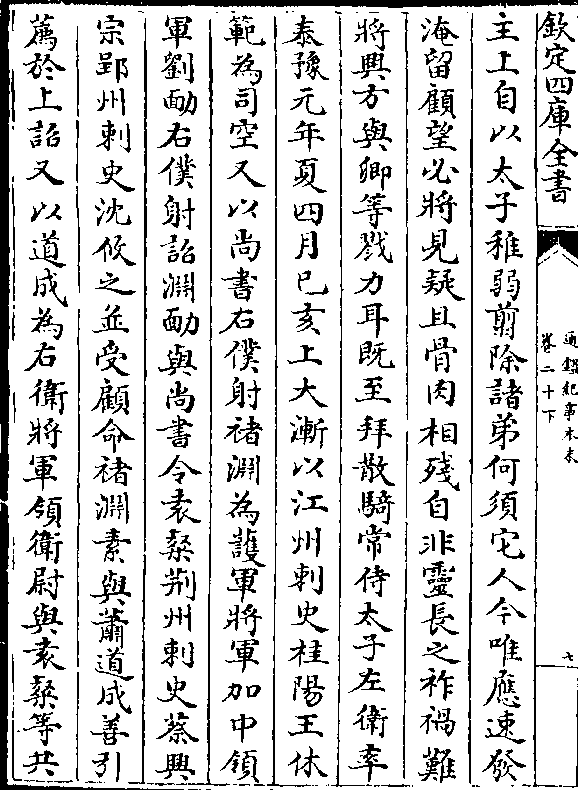 欽定四庫全書
通鑑紀事本末
卷二十下
七
主上自以太子稚弱翦除諸弟何須它人今唯應速發
淹留顧望必將見疑且骨肉相殘自非靈長之祚禍難
將興方與卿等戮力耳既至拜散騎常侍太子左衛率
泰豫元年夏四月己亥上大漸以江州刺史桂陽王休
範為司空又以尚書右僕射褚淵為護軍將軍加中領
軍劉勔右僕射詔淵勔與尚書令袁粲荆州刺史蔡興
宗郢州刺史沈攸之並受顧命褚淵素與蕭道成善引
薦於上詔又以道成為右衛將軍領衛尉與袁粲等共